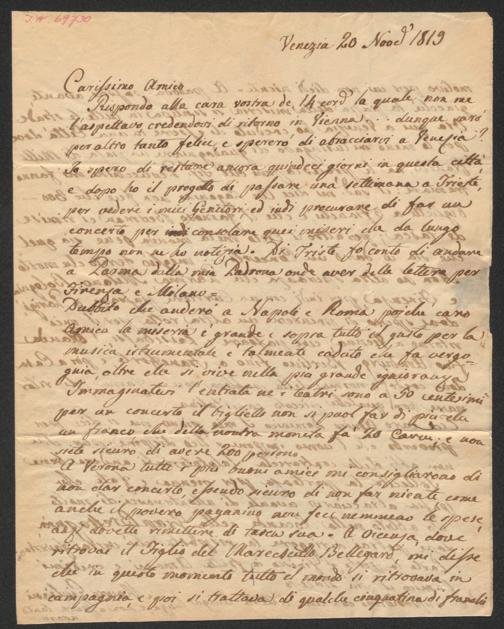 I.N. 69730
Venezia 20 Novd 1819
Carissimo Amico
Rispondo alla cara vostra de 14 cord la quale non me
l'aspettavo credendovi di ritorno in Vienna... dunque sarò
per altro tanto felice e spererò di abracciarvi a Venezia?
Io spero di restare ancora quindeci giorni in questa città
e dopo ho il progetto di passare una settimana a Trieste,
per vedere i miei Genitori ed indi procurare di far un
concerto per consolare quei miseri che da lungo
tempo non ne ho notizia. Di Trieste fo conto di andare
a Parma dalla mia Padrona onde aver delle lettere per
Firenza e Milano=
Dubbito che anderò a Napole e Roma poiche caro
Amico la miseria e grande e sopra tutti il gusto per la
musica istrumentale e talmente caduto che fa vergo
gnia oltre che si vive nella più grande ignoranza
Immaginatevi l'entrata ne teatri sono a 50 centesimi
per un concerto il biglietto non si puol far di più che
un franco che della vostra moneta fa 20 Carin. e non
siete sicuro di avere 200 persone.
A Verona tutti i più buoni amici mi consigliarono di
non dar concerto, essendo sicuro di non far niente come
anche il povero paganini non fece nemmeno le spese
ed dovette rimettere di tasca sua. A Vicenza dove
ritrovai il Figlio del Marescallo Bellegard mi disse
che in questo momento tutto il mondo si ritrovava in
campagnia e poi si trattava di qualche cinquantina di franchi